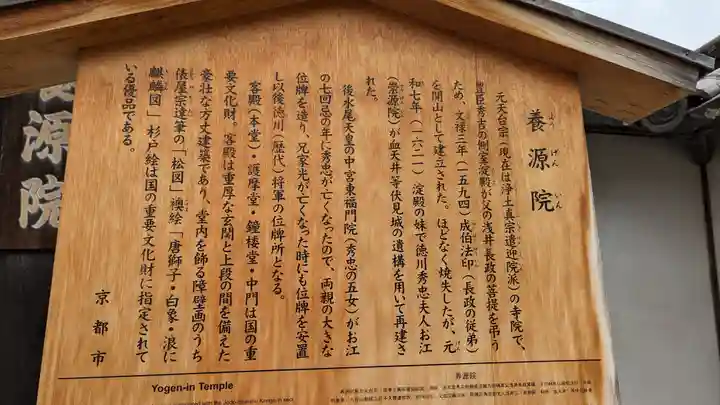 養源院
よう げん いん
元天台宗(現在は浄土真宗遣迎院派)の寺院で、
豊臣秀吉の側室淀殿が父の浅井長政の菩提を弔う
ため、文禄三年(一五九四)成伯法印(長政の従弟)
を開山として建立された。ほどなく焼失したが、元
和七年(一六二一)淀殿の妹で徳川秀忠夫人お江
(崇源院)が血天井等伏見城の遺構を用いて再建さ
れた。
後水尾天皇の中宮東福門院(秀忠の五女)がお江
の七回忌の年に秀忠が亡くなったので、両親の大きな
位牌を造り、兄家光が亡くなった時にも位牌を安置
し以後徳川(歴代)将軍の位牌所となる。
客殿(本堂)・護摩堂・鐘楼堂・中門は国の重
要文化財。客殿は重厚な玄関と上段の間を備えた
豪壮な方丈建築であり、堂内を飾る障壁画のうち
俵屋宗達筆の「松図」襖絵「唐獅子・白象・浪に
麒麟図」杉戸絵は国の重要文化財に指定されて
いる優品である。
京都市
源院
Yogen-in Temple
养源院